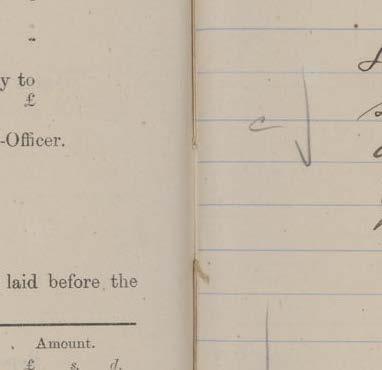 y to
£
-Officer.
laid before the
Amount.
£ s. d.